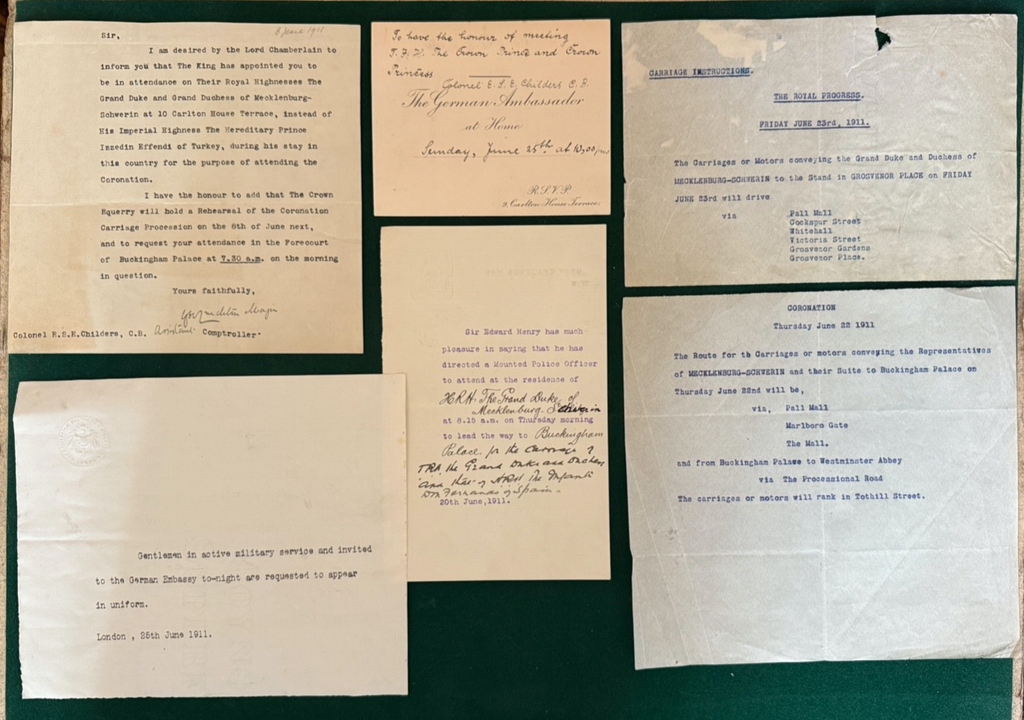 6 June 1911
Sir,
I am desired by the Lord Chamberlain to
inform you that The King has appointed you to
be in attendance on Their Royal Highnesses The
Grand Duke and Grand Duchess of Mecklenburg-
Schwerin at 10 Carlton House Terrace, instead of
His Imperial Highness The Hereditary Prince
Izzedin Effendi of Turkey, during his stay in
this country for the purpose of attending the
Coronation.
I have the honour to add that The Crown
Equerry will hold a Rehearsal of the Coronation
Carriage Procession on the 8th of June next,
and to request your attendance in the Forecourt
of Buckingham Palace at 7.30 a.m. on the morning
in question.
Yours faithfully,
Major
Colonel E.S.E.Childers, C.B. Assistant Comptroller.
Gentlemen in active military service and invited
to the German Embassy to-night are requested to appear
in uniform.
London , 25th June 1911.
To have the honour of meeting
The Crown Prince and Crown
Princess
Colonel E. S. E. Childers C.B.
The German Ambassador
at Home
Sunday, June 25th at 10,00 pm
R.S.V.P.
9, Carlton House Terrace.
Sir Edward Henry has much
pleasure in saying that he has
directed a Mounted Police Officer
to attend at the residence of
HRH. The Grand Duke of
Mecklenburg Schwerin
at 8.15 a.m. on Thursday morning
to lead the way to Buckingham
Palace for the Carriage of
TRH the Grand Duke and Duchess
and that of HRH The Infante
Don Fernando of Spain.
20th June,1911.
CARRIAGE INSTRUCTIONS.
THE ROYAL PROGRESS.
FRIDAY JUNE 23rd, 1911.
The Carriages or Motors conveying the Grand Duke and Duchess of
MECKLENBURG-SCHWERIN to the Stand in GROSVENOR PLACE on FRIDAY
JUNE 23rd will drive
via Pall Mall
Cockspur Street
Whitehall
Victoria Street
Grosvenor Gardens
Grosvenor Place.
CORONATION
Thursday June 22 1911
The Route for th Carriages or motors conveying the Representatives
of MECKLENBURG-SCHWERIN and their Suite to Buckingham Palace on
Thursday June 22nd will be,
via, Pall Mall
Marlboro Gate
The Mall.
and from Buckingham Palace to Westminster Abbey
via The Processional Road
The carriages or motors will rank in Tothill Street.